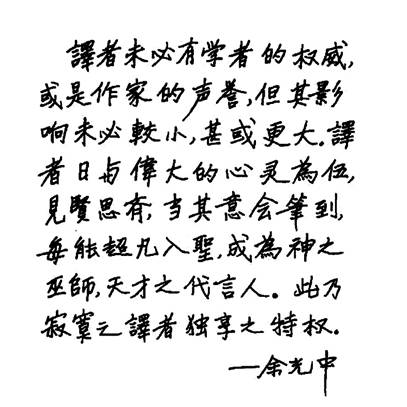 譯者未必有学者的权威,
或是作家的声誉,但其影
响未必較小,甚或更大.譯
者日与偉大的心灵為伍,
見賢思齊,当其意会筆到,
每能超凡入聖,成為神之
巫師,天才之代言人。此乃
寂寞之譯者独享之特权.
—余光中